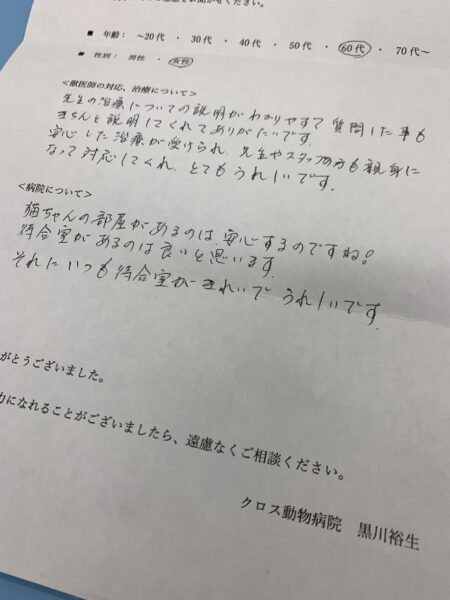 お聞かせください。
■ 年齢： ～20代 ・ 30代 ・ 40代 ・ 50代 ・ 60代 ・ 70代～
■ 性別： 男性 ・ 女性
＜獣医師の対応、治療について＞
先生の治療についての説明がわかりやすて 質問した事も
きちんと説明してくれてありがたいです。
安心した治療が受けられ、先生やスタッフの方も親身に
なって対応してくれ、とてもうれしいです。
＜病院について＞
猫ちゃんの部屋があるのは、安心するのですね！
待合室があるのは良いと思います。
それにいつも待合室がきれいで うれしいです。
がとうございました。
力になれることがございましたら、遠慮なくご相談ください。
クロス動物病院 黒川裕生